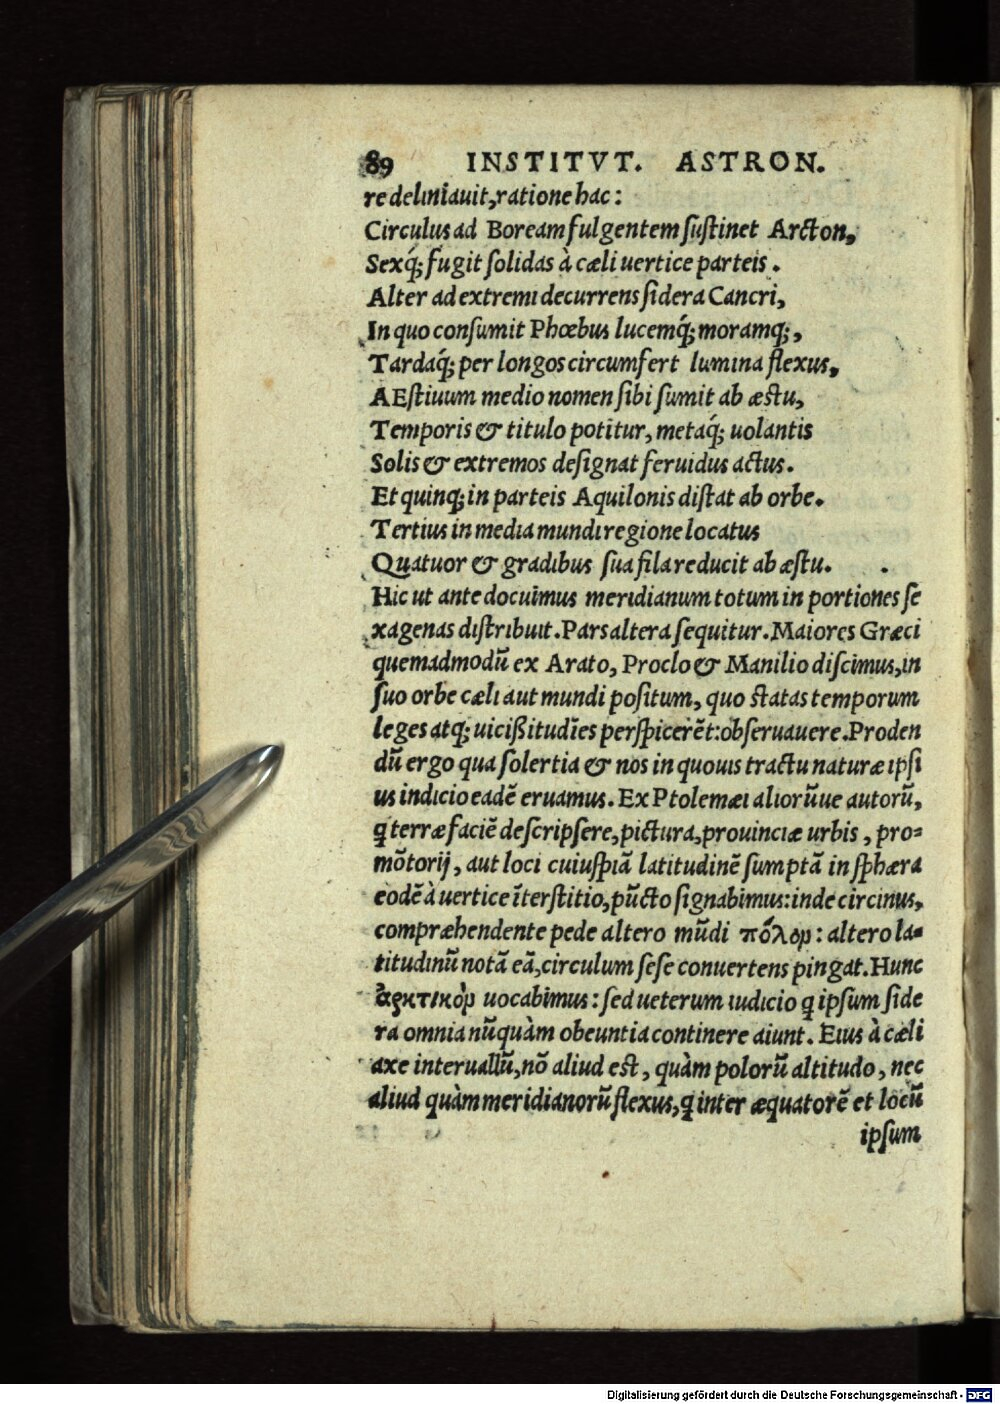 89 INSTITVT. ASTRON.
re deliniauit, ratione hac:
Circulus ad Boream fulgentem ſuſtinet Arcton,
Sexq́; fugit ſolidas à cæli uertice parteis.
Alter ad extremi decurrens ſidera Cancri,
In quo conſumit Phœbus lucemq́; moramq́;,
Tardaq́; per longos circumfert lumina flexus,
AEſtiuum medio nomen ſibi ſumit ab æſtu,
Temporis & titulo potitur, metaq́; uolantis
Solis & extremos deſignat feruidus actus.
Et quinq; in parteis Aquilonis diſtat ab orbe.
Tertius in media mundi regione locatus
Quatuor & gradibus ſua fila reducit ab æſtu.
Hic ut ante docuimus meridianum totum in portiones ſe
xagenas diſtribuit. Pars altera ſequitur. Maiores Græci
quemadmodū ex Arato, Proclo & Manilio diſcimus, in
ſuo orbe cæli aut mundi poſitum, quo ſtatas temporum
leges atq; uiciſſitudīes perſpicerēt: obſeruauere. Proden
dū ergo qua ſolertia & nos in quouis tractu naturæ ipſi
us indicio eadē eruamus. Ex Ptolemæi aliorūue autorū,
q̃ terræ faciē deſcripſere, pictura, prouinciæ urbis, pro=
mōtorij, aut loci cuiuſpiā latitudinē ſumptā in ſphæra
eodē à uertice īterſtitio, pūcto ſignabimus: inde circinus,
compræhendente pede altero mūdi πόλον: altero la=
titudinū notā eā, circulum ſeſe conuertens pingat. Hunc
ἀρκτικὸν uocabimus: ſed ueterum iudicio q̃ ipſum ſide
ra omnia nūquàm obeuntia continere aiunt. Eius à cæli
axe interuallū, nō aliud eſt, quàm polorū altitudo, nec
aliud quàm meridianorū flexus, q̃ inter æquatorē et locū
ipſum
Digitalisierung gefördert durch die Deutsche Forschungsgemeinschaft - DFG